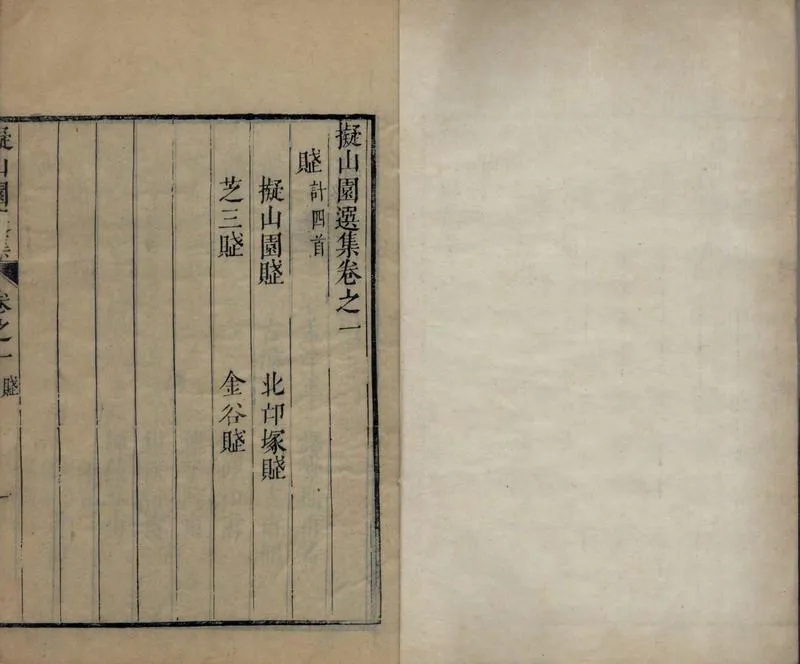 擬山園選集卷之一
賦 計四首
擬山園賦 北邙塚賦
芝三賦 金谷賦
擬山園選集 卷之一 賦 一